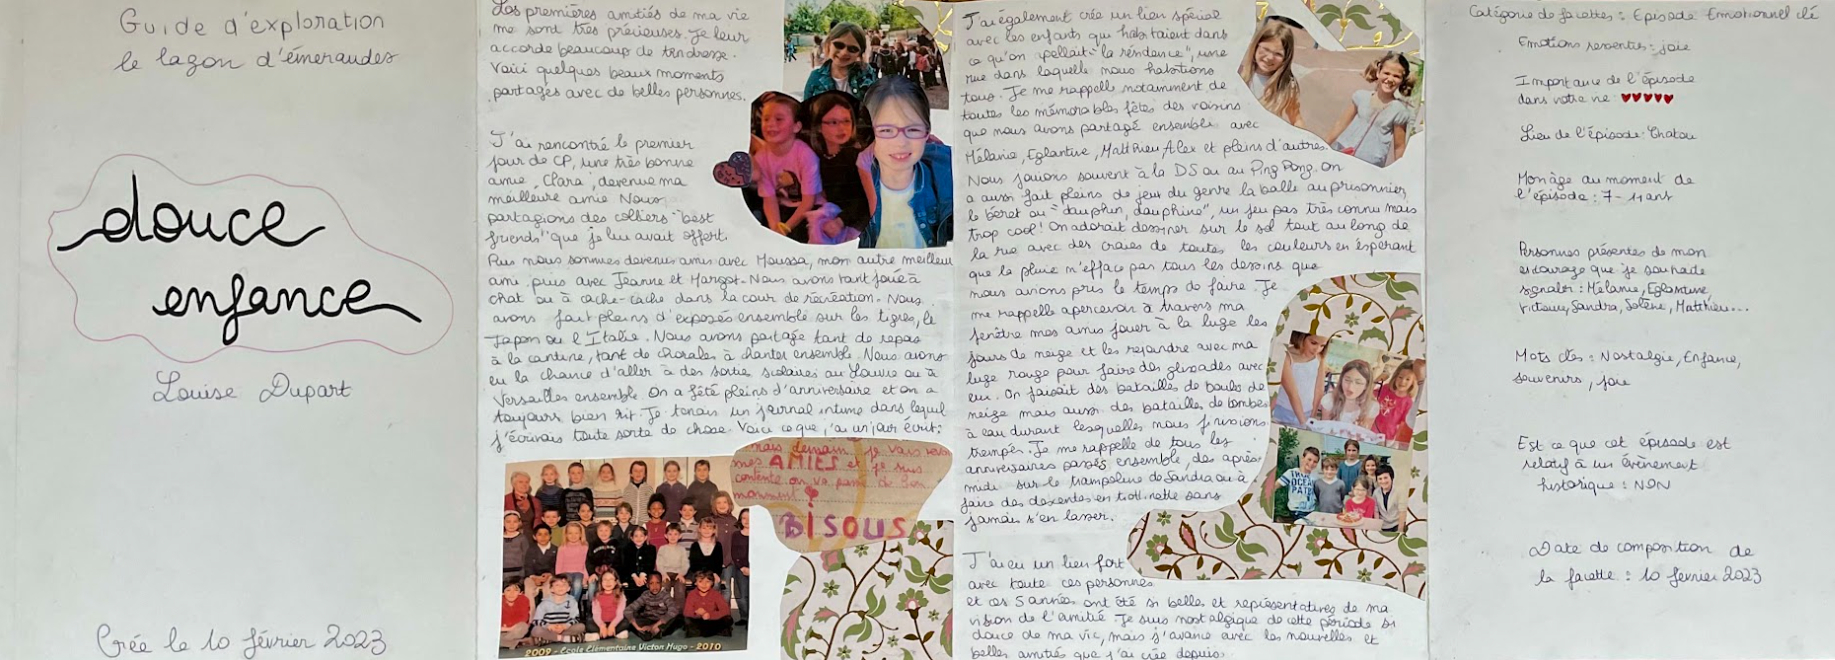 Guide d'exploration
le lagon d'émeraudes
douce
enfance
Louise Dupart
Crée le 10 février 2023
Les premières amitiés de ma vie
me sont très précieuses. Je leur
accorde beaucoup de tendresse.
Voici quelques beaux moments
partagés avec de belles personnes.
J'ai rencontré le premier
jour de CP, une très bonne
amie, Clara, devenue ma
meilleure amie. Nous
partagions des colliers "best
friends" que je lui avait offert.
Puis nous sommes devenus amis avec Moussa, mon autre meilleur
ami puis avec Jeanne et Margot. Nous avons tant joué à
chat ou à cache-cache dans la cour de récréation. Nous
avons fait pleins d'exposés ensemble sur les tigres, le
Japon ou l'Italie. Nous avons partagé tant de repas
à la cantine, tant de chorales à chanter ensemble. Nous avons
eu la chance d'aller à des sortie scolaires au Louvre ou à
Versailles ensemble. On a fêté pleins d'anniversaire et on a
toujours bien rit. Je tenais un journal intime dans lequel
j'écrivais toute sorte de chose. Voici ce que j'ai un jour écrit:
mais demain je vais revoir
mes AMIES et je suis
contente on va passé de bon
moment
BISOUS
2009 - École Élémentaire Victor Hugo - 2010
J'ai également crée un lien spécial
avec les enfants qui habitaient dans
ce qu'on appellait "la résidence", une
rue dans laquelle nous habitions
tous. Je me rappelle notamment de
toutes les mémorables fêtes des voisins
que nous avons partagé ensemble avec
Mélanie, Eglantine, Matthieu, Alex et pleins d'autres.
Nous jouions souvent à la DS ou au Ping Pong. On
a aussi fait pleins de jeu du genre la balle au prisonnier,
le béret ou "dauphin, dauphine", un jeu pas très connu mais
trop cool! On adorait dessiner sur le sol tout au long de
la rue avec des craies de toutes les couleurs en espérant
que la pluie n'efface pas tous les dessins que
nous avions pris le temps de faire. Je
me rappelle apercevoir à travers ma
fenêtre mes amis jouer à la luge les
jours de neige et les rejoindre avec ma
luge rouge pour faire des glissades avec
eux. On faisait des batailles de boules de
neige mais aussi des batailles de bombes
à eau durant lesquelles nous finissions
trempés. Je me rappelle de tous les
anniversaires passés ensemble, des après-
midi sur le trampoline de Sandra ou à
faire des descentes en trottinette sans
jamais s'en lasser.
J'ai eu un lien fort
avec toute ces personnes
et ces 5 années ont été si belles et représentatives de ma
vision de l'amitié. Je suis nostalgique de cette période si
douce de ma vie, mais j'avance avec les nouvelles et
belles amitiés que j'ai crée depuis.
Catégorie de facettes : Episode Emotionnel clé
Emotions ressenties : joie
Importance de l'épisode
dans votre vie ♥♥♥♥♥
Lieu de l'épisode : Chatou
Mon âge au moment de
l'épisode : 7-11 ans
Personnes présentes de mon
entourage que je souhaite
signaler : Mélanie, Eglantine,
Sandra, Solène, Matthieu...
Mots clés : Nostalgie, Enfance,
souvenirs, joie
Est ce que cet épisode est
relatif à un évènement
historique : NON
Date de composition de
la facette : 10 février 2023